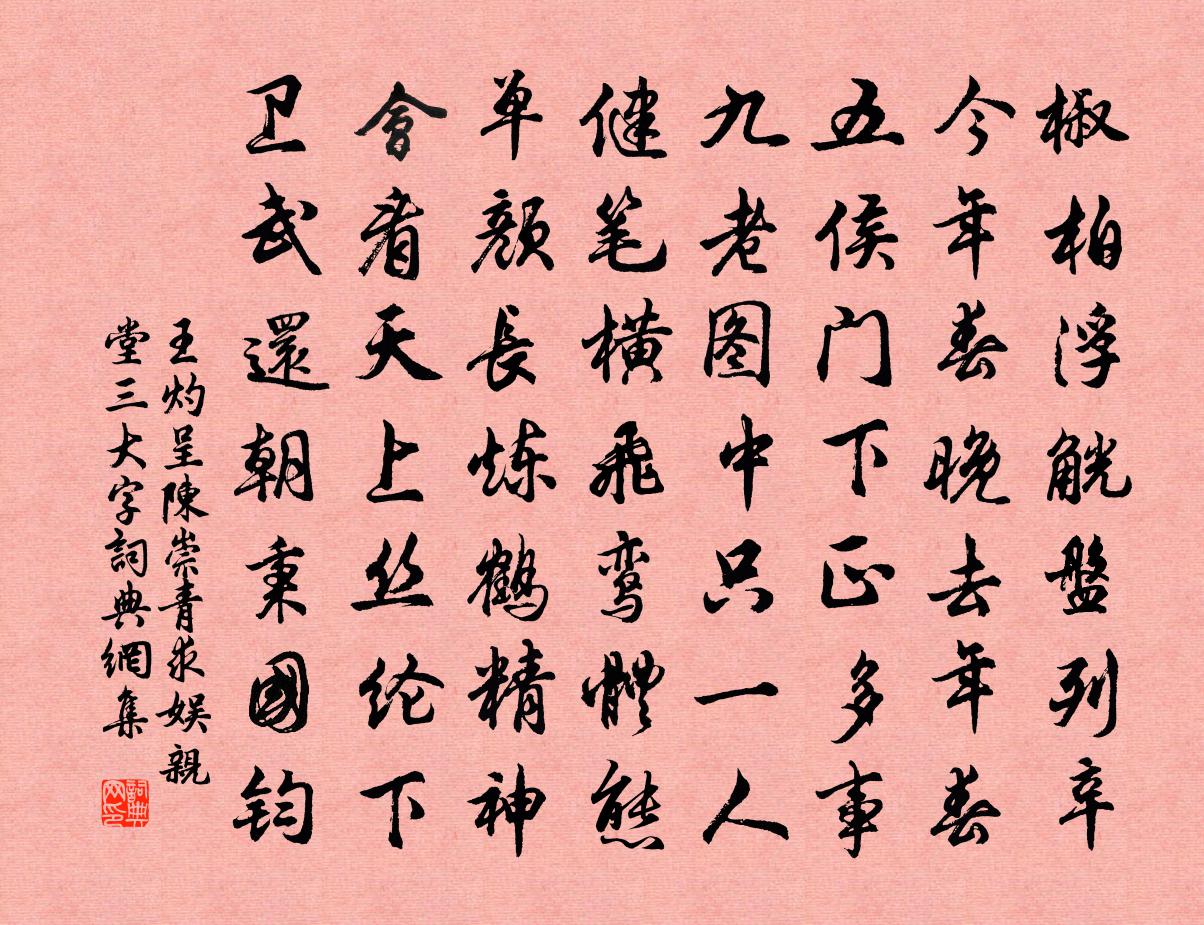 椒柏浮觥盤列辛
今年春晚去年春
五侯门下正多事
九老图中只一人
健笔横飛鸾體態
单颜長炼鹤精神
會看天上丝纶下
卫武還朝秉國钧
王灼呈陳崇青求娱親
堂三大字詞典網集
詞典網印